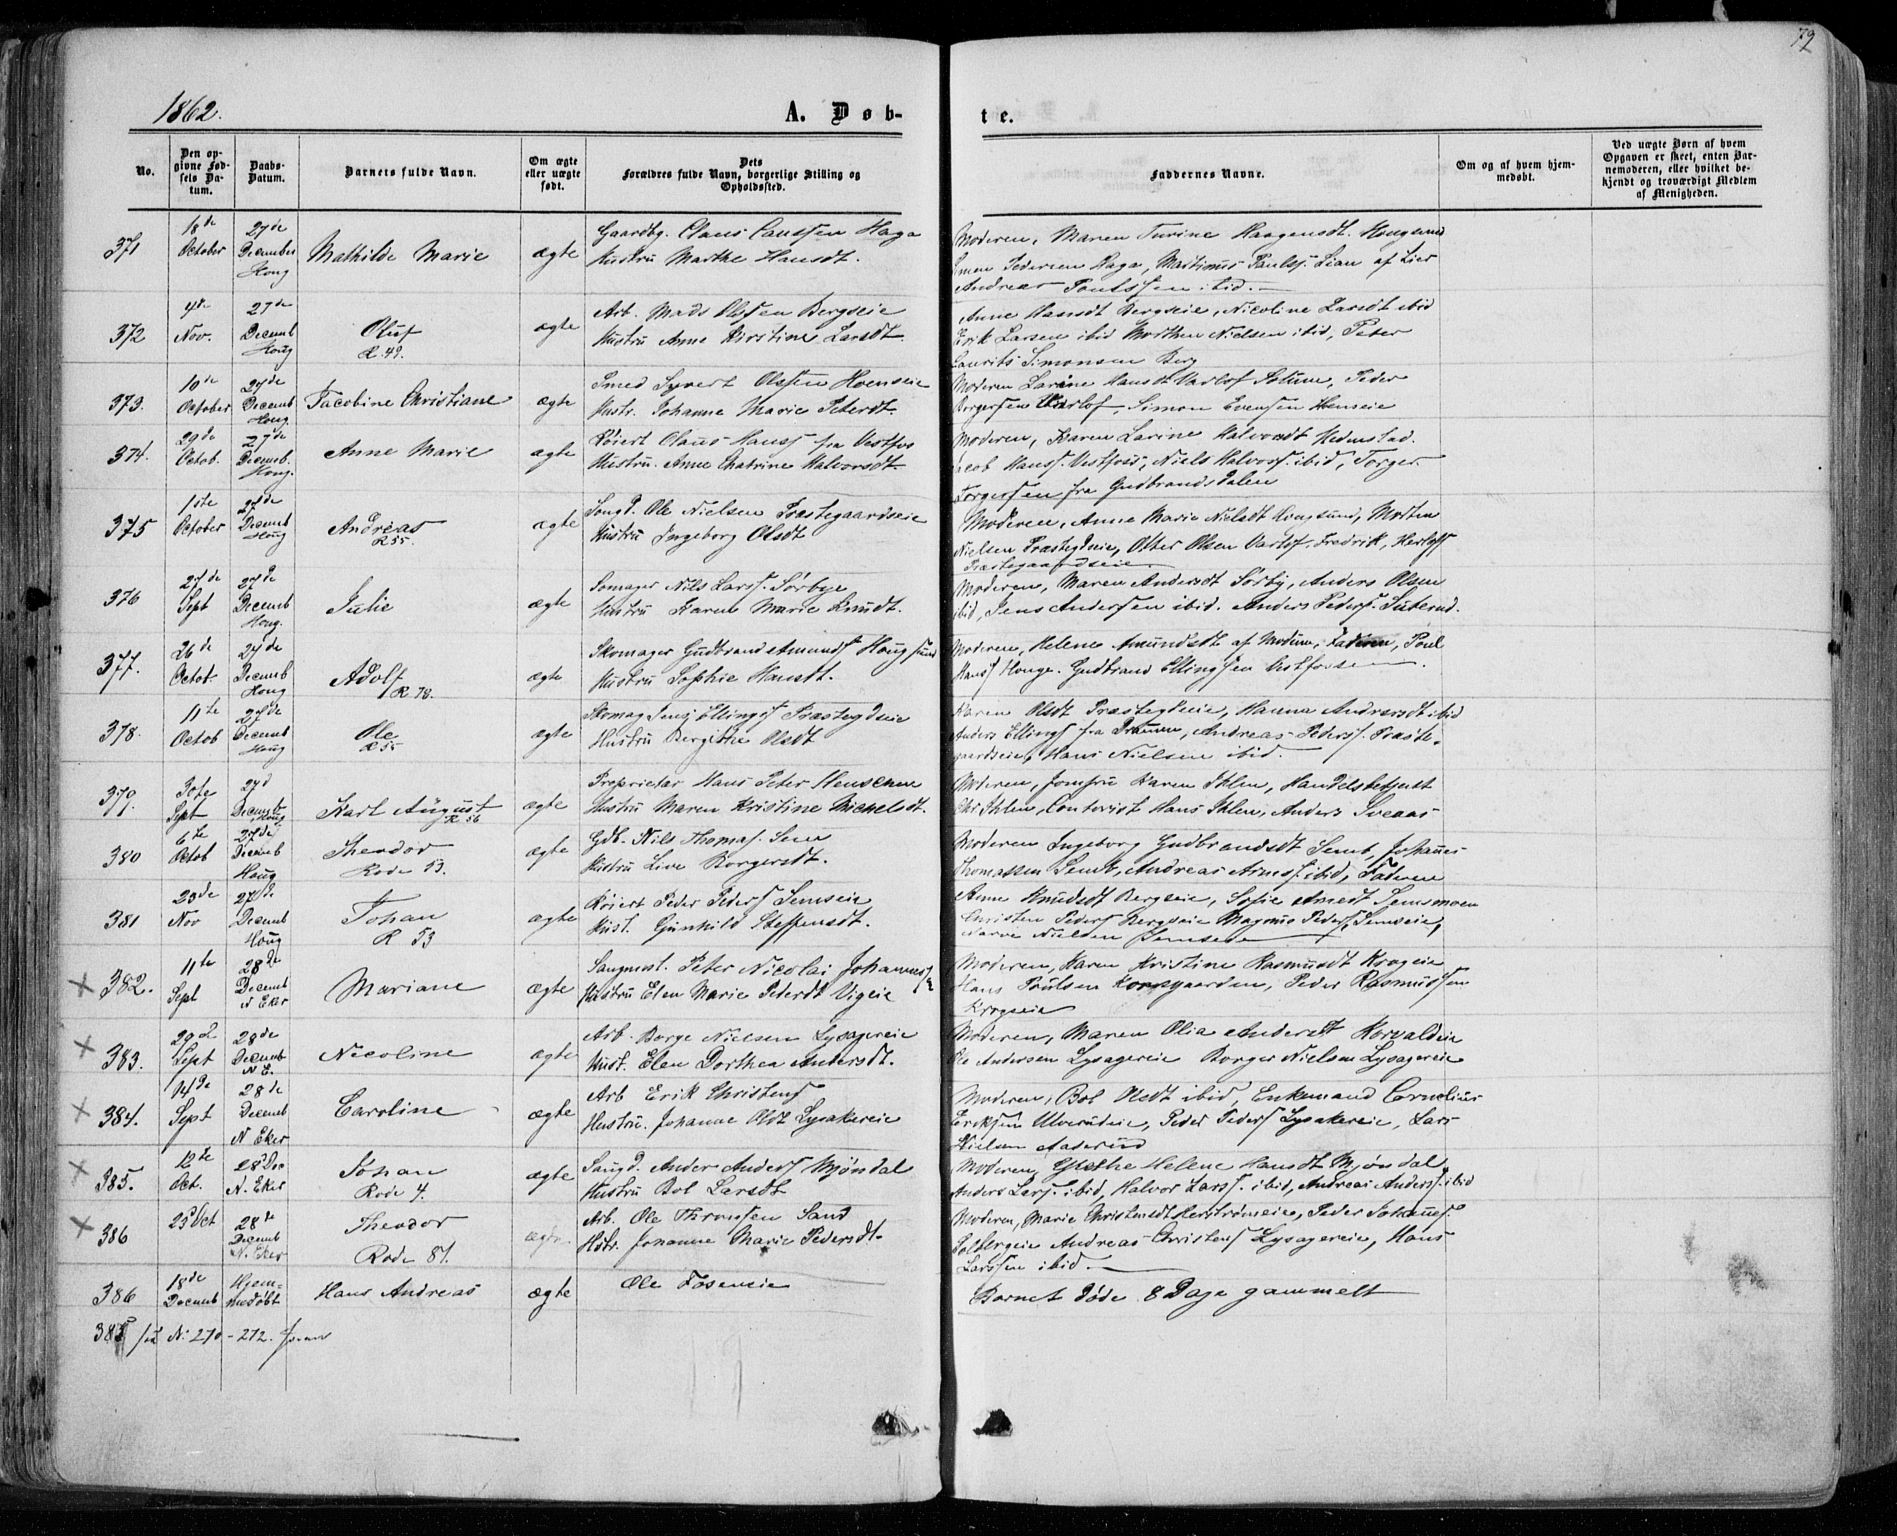 72
1862.
A. Døb-
te.
No.
Den opgivne Fødsels Datum.
Daabs-Datum.
Barnets fulde Navn.
Om ægte eller uægte født.
Dets Forældres fulde Navn, borgerlige Stilling og Opholdssted.
Faddernes Navne.
Om og af hvem hjemmedøbt.
Ved uægte Børn af hvem Opgaven er skeet, enten Barnemoderen, eller hvilket bekjendt og troværdigt Medlem af Menigheden.
371 18de October 27de December Houg Mathilde Marie ægte
Gaardbg. Claus Haga
Hustru Marthe Hansdt.
Moderen, Maren Turine Haagensdt. Hougsund
Pedersen Haga, Martinus Paulss. Lian af Lier
Andreas ibid.
372 4de Nov. 27de Decemb Houg Oluf R. 49. ægte
Arb. Mads Olssen Bergseie
Hustru Anne Kirstine Larsdt
Anne Hansdt Bergseie, Nicoline Larsdt ibid
Erik Larsen ibid Morthen Nielsen ibid, Peter
Laurits Simonsen Berg
373. 10de October 27de Decemb Houg. Jacobine Christiane ægte
Smed Syvert Olssen Hoenseie
Hustr. Johanne Marie Peterdt.
Moderen Larine Hansdt Varlof Peder
Borgersen Varlof, Simon Evensen Hoenseie
374. 29de Octob. 27de Decemb. Houg. Anne Marie ægte
Roiert Olaus Hanss fra Vestfos
Hustru. Anne Chatrine Halvorsdt
Moderen, Karen Larine Halvorsdt Hedenstad.
Jacob Hanss. Vestfos, Niels Halvorss. ibid, Torger
Torgerssen fra Gudbrandsdalen
375 1ste October 27de Decemb Houg Andreas R 55. ægte
Ole Nielsen Præstegaardseie
Hustru Ingeborg Olsdt
Moderen, Anne Marie Nielsdt Hougsund, Morten
Nielsen Præstegdseie, Otter Olsen Varlof, Fredrik,
Præstegaardseie
376 27de Sept 27de Decemb Houg. Julie ægte
Somager Nils Larss. Sørbye
Hustru Karen Marie Knudt.
Moderen, Maren Andersdt Sørby, Anders Olsen
ibid, Jens Andersen ibid. Anders Pederss.
377. 26de Octob. 27de Decemb Houg Adolf R. 78. ægte
Skomager Gudbrand Amundss Hougsund
Hustru Sophie Hansdt.
Moderen, Helene Amundsdt af Modum, Faderen, Poul
Hanss Houge. Gudbrand Ellingsen Vestfossen.
378. 11te Octob 27de Decemb Houg Ole R 55 ægte
Skomag Jens Ellingss Præstegdseie
Hustru Bergithe Olsdt
Karen Olsdt Præstegdseie, Hanna Andersdt ibid
Anders Ellingss fra Drammen, Andreas Pederss. Præste-
gaardseie, Hans Nielsen ibid.
379. 30te Sept 27d Decemb Houg Karl August R 56 ægte
Proprietær Hans Peter Henschen
Hustru Maren Kristine Michelsdt.
Moderen, Jomfru Karen Ihlen, Handelsbetjent
Chr Ihlen, Contorist Hans Ihlen, Anders Sveaas
380 6te Octob 27de Decemb Houg Theodor Rode 53. ægte
Gdb. Nils Thomass. Sem
Hustru Live Borgersdt.
Moderen Ingeborg Gudbrandsdt Semb, Johannes
Thomassen Semb, Andreas ibid, Faderen
381 23de Nov 27de Decemb Houg Johan R 53 ægte
Roiert Peder Pederss Semseie
Hust. Gunhild Steffensdt.
Anne Knudsdt Bergseie, Sofie Arnedt Semsmoen
Christen Pederss Bergseie Magnus Pederss. Semseie,
Narve Nielsen Semseie
× 382. 11te Sept 28de Decemb N Eker Mariane ægte
Sangmest. Peter Nicolai Johannessen
Hustru Elen Marie Pedersdt Vigeie
Moderen, Karen Kristine Rasmusdt Krogeie
Hans Poulsen Korsgaarden, Peder Rasmussen
Krogseie
× 383. 29de Sept 28de Decemb N E. Nicoline ægte
Arb. Borge Nielsen Lysagereie
Hust. Elen Dorthea Andersdt.
Moderen, Maren Olia Andersdt Horvaldeie
Ole Andersen Lysagereie Borger Nielsen Lysagereie
× 384. 14de Sept 28de Decemb N Eker Caroline ægte
Arb Erik Christenss
Hustru. Johanne Olsdt Lysakereie
Moderen, Bol Olsdt ibid, Enkemand Cornelius
Eriksen Ulverudeie, Peder Pederss Lysakereie, Lars
Nielsen Aaserud
× 385. 12te Oct. 28de Dec N. Eker Johan Rode 4. ægte
Saugd. Ander Anderss Mjøndal
Hustru Bol Larsdt
Moderen, Grethe Helene Hansdt Mjøndal,
Anders Larss. ibid, Halvor Larss. ibid, Andreas Anderss. ibid
× 386 25de Oct 28de Decemb N. Eker Theodor Rode 81. ægte.
Arb. Ole Thronsen Sand
Hstr. Johanne Marie Pedersdt.
Moderen, Marie Christensdt Peder Johannes.
Andreas Christenss Lysagereie, Hans
Larssen ibid.
386 18de Decemb Hjemmedøbt Hans Andreas ægte
Ole Foseneie
Barnet døde 8 Dage gammelt
No. 270-272.